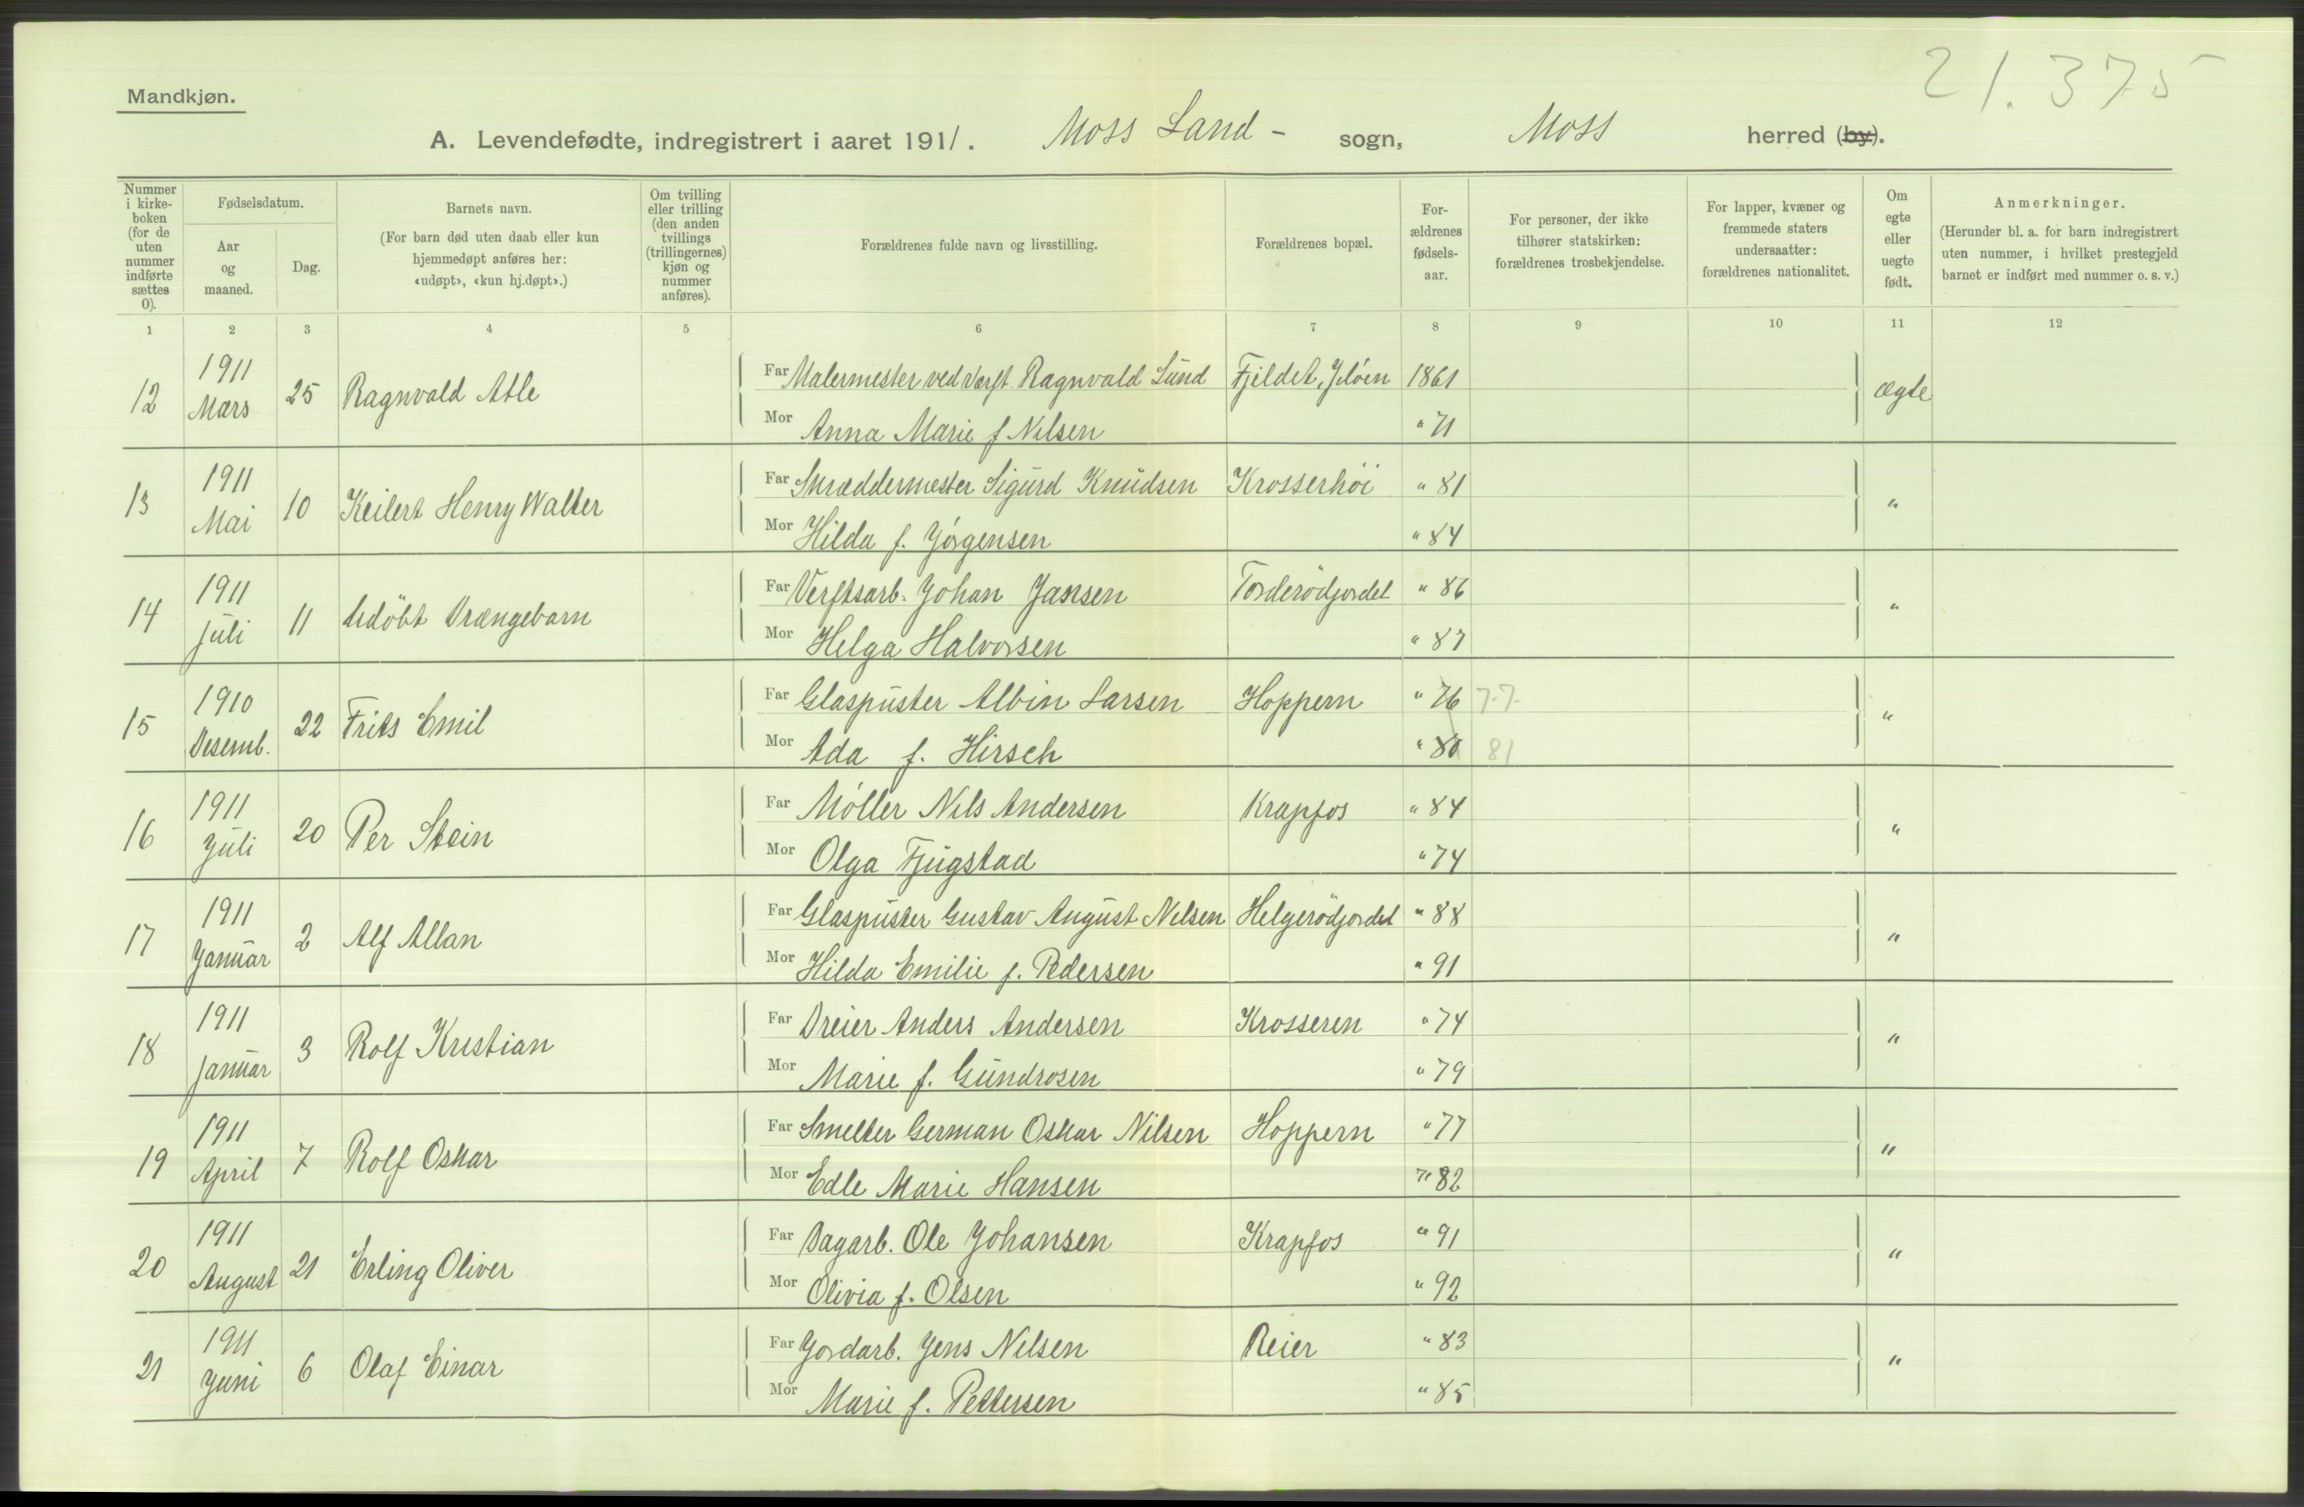 21.375
Mandkjøn.
A. Levendefødte, indregistrert i aaret 1911. Moss Land- sogn, Moss herred (by).
Nummer i kirke-boken (for de uten nummer indførte sættes 0).
Fødselsdatum.
Aar og maaned.
Dag.
Barnets navn.
(For barn død uten daab eller kun hjemmedøpt anføres her: «udøpt», «kun hj.døpt».)
Om tvilling eller trilling (den anden tvillings (trillingernes) kjøn og nummer anføres).
Forældrenes fulde navn og livsstilling.
Forældrenes bopæl.
For-ældrenes fødsels-aar.
For personer, der ikke tilhører statskirken: forældrenes trosbekjendelse.
For lapper, kvæner og fremmede staters undersaatter: forældrenes nationalitet.
Om egte eller uegte født.
Anmerkninger.
(Herunder bl. a. for barn indregistrert uten nummer, i hvilket prestegjeld barnet er indført med nummer o. s. v.)
1 2 3 4 5 6 7 8 9 10 11 12
12 1911 Mars 25 Ragnvald Atle Far Malermester ved Værft Ragnvald Lund Fjeldet, Jeløen 1861 ægte
Mor Anna Marie f Nilsen " 71
13 1911 Mai 10 Keilert Henry Walter Far Skræddermester Sigurd Knudsen Krosserhøi " 81 "
Mor Hilda f. Jørgensen " 84
14 1911 Juli 11 Udöbt Drængebarn Far Verftsarb. Johan Jansen Torderödjordet " 86 "
Mor Helga Halvorsen " 87
15 1910 Desemb. 22 Frits Emil Far Glaspuster Albin Larsen Hoppern " 76 77 "
Mor Ada f. Hirsch " 80 81
16 1911 Juli 20 Per Stein Far Møller Nils Andersen Krapfos " 84 "
Mor Olga Fjugstad " 74
17 1911 Januar 2 Alf Allan Far Glaspuster Gustav August Nilsen Helgerödjordet " 88 "
Mor Hilda Emilie f. Pedersen " 91
18 1911 Januar 3 Rolf Kristian Far Dreier Anders Andersen Krosseren " 74 "
Mor Marie f. Gundrosen " 79
19 1911 April 7 Rolf Oskar Far Smelter German Oskar Nilsen Hoppern " 77 "
Mor Edle Marie Hansen " 82
20 1911 August 21 Erling Oliver Far Dagarb. Ole Johansen Krapfos " 91 "
Mor Olivia f. Olsen " 92
21 1911 Juni 6 Olaf Einar Far Jordarb. Jens Nilsen Reier " 83 "
Mor Marie f. Pettersen " 85